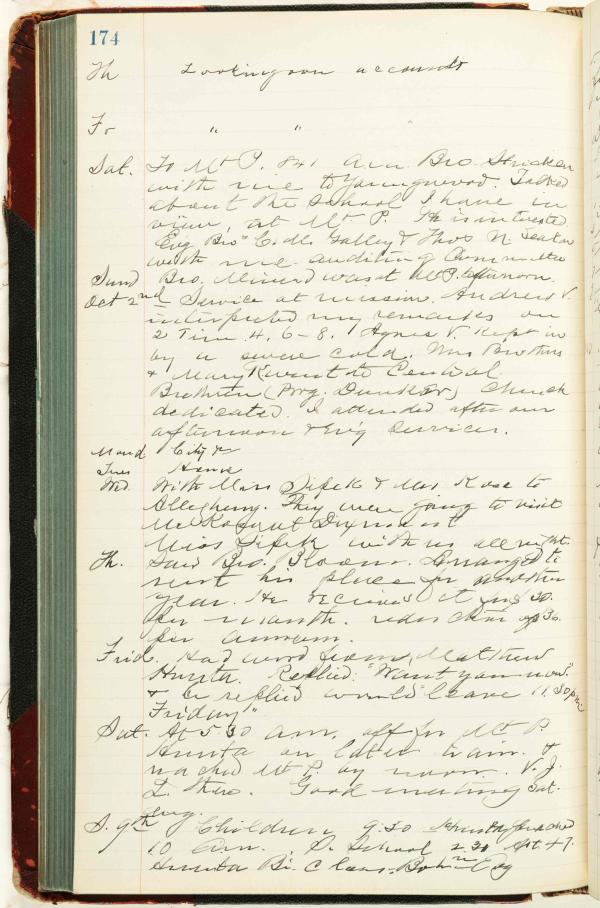 174
Th Looking over accounts
Fr " "
Sat. To Mt P. 841 a.m. Bro. Stricken
with me to Youngwood. Talked
about the School I have in
view, at Mt P. He is interested.
Evg Bros C. M. Galley & Thos N. Seaton
with me auditing Committee
Sund Bro. Minerd was at Mt P. afternoon.
Oct 2nd Service at mission. Andrew V.
interpreted my remarks on
2 Tim. 4. 6-8. Agnes V. kept in
by a severe cold. Mrs Brothers
& Mary K went to Central
Brethren (Prog. Dunker) Church
dedicated. I attended after our
afternoon & Ev'g services.
Mond City &
Tues Home
Wed. With Miss & Mrs Rose to
Allegheny. They were going to visit
Mc at Dixmont
Miss with us all night.
Th. Saw Bro. Bloom. Arranged to
rent his place for another
year. He receives it for $30.
per month. reduction of 36.
per annum.
Frid. Had word from Matthew
Hunta. Replied: "Want you now."
& he replied would "leave 11.30 p.m.
Friday"
Sat. At 5 30 a.m. off for Mt P.
Hunta on later train. &
reached Mt P. by noon. V. J.
L. there. Good meeting Sat.
evg.
S. 9th Children 9.30 Hunta preached
10 a.m. S. School 2.30 Att. 47.
Hunta Bi. Class. Evg